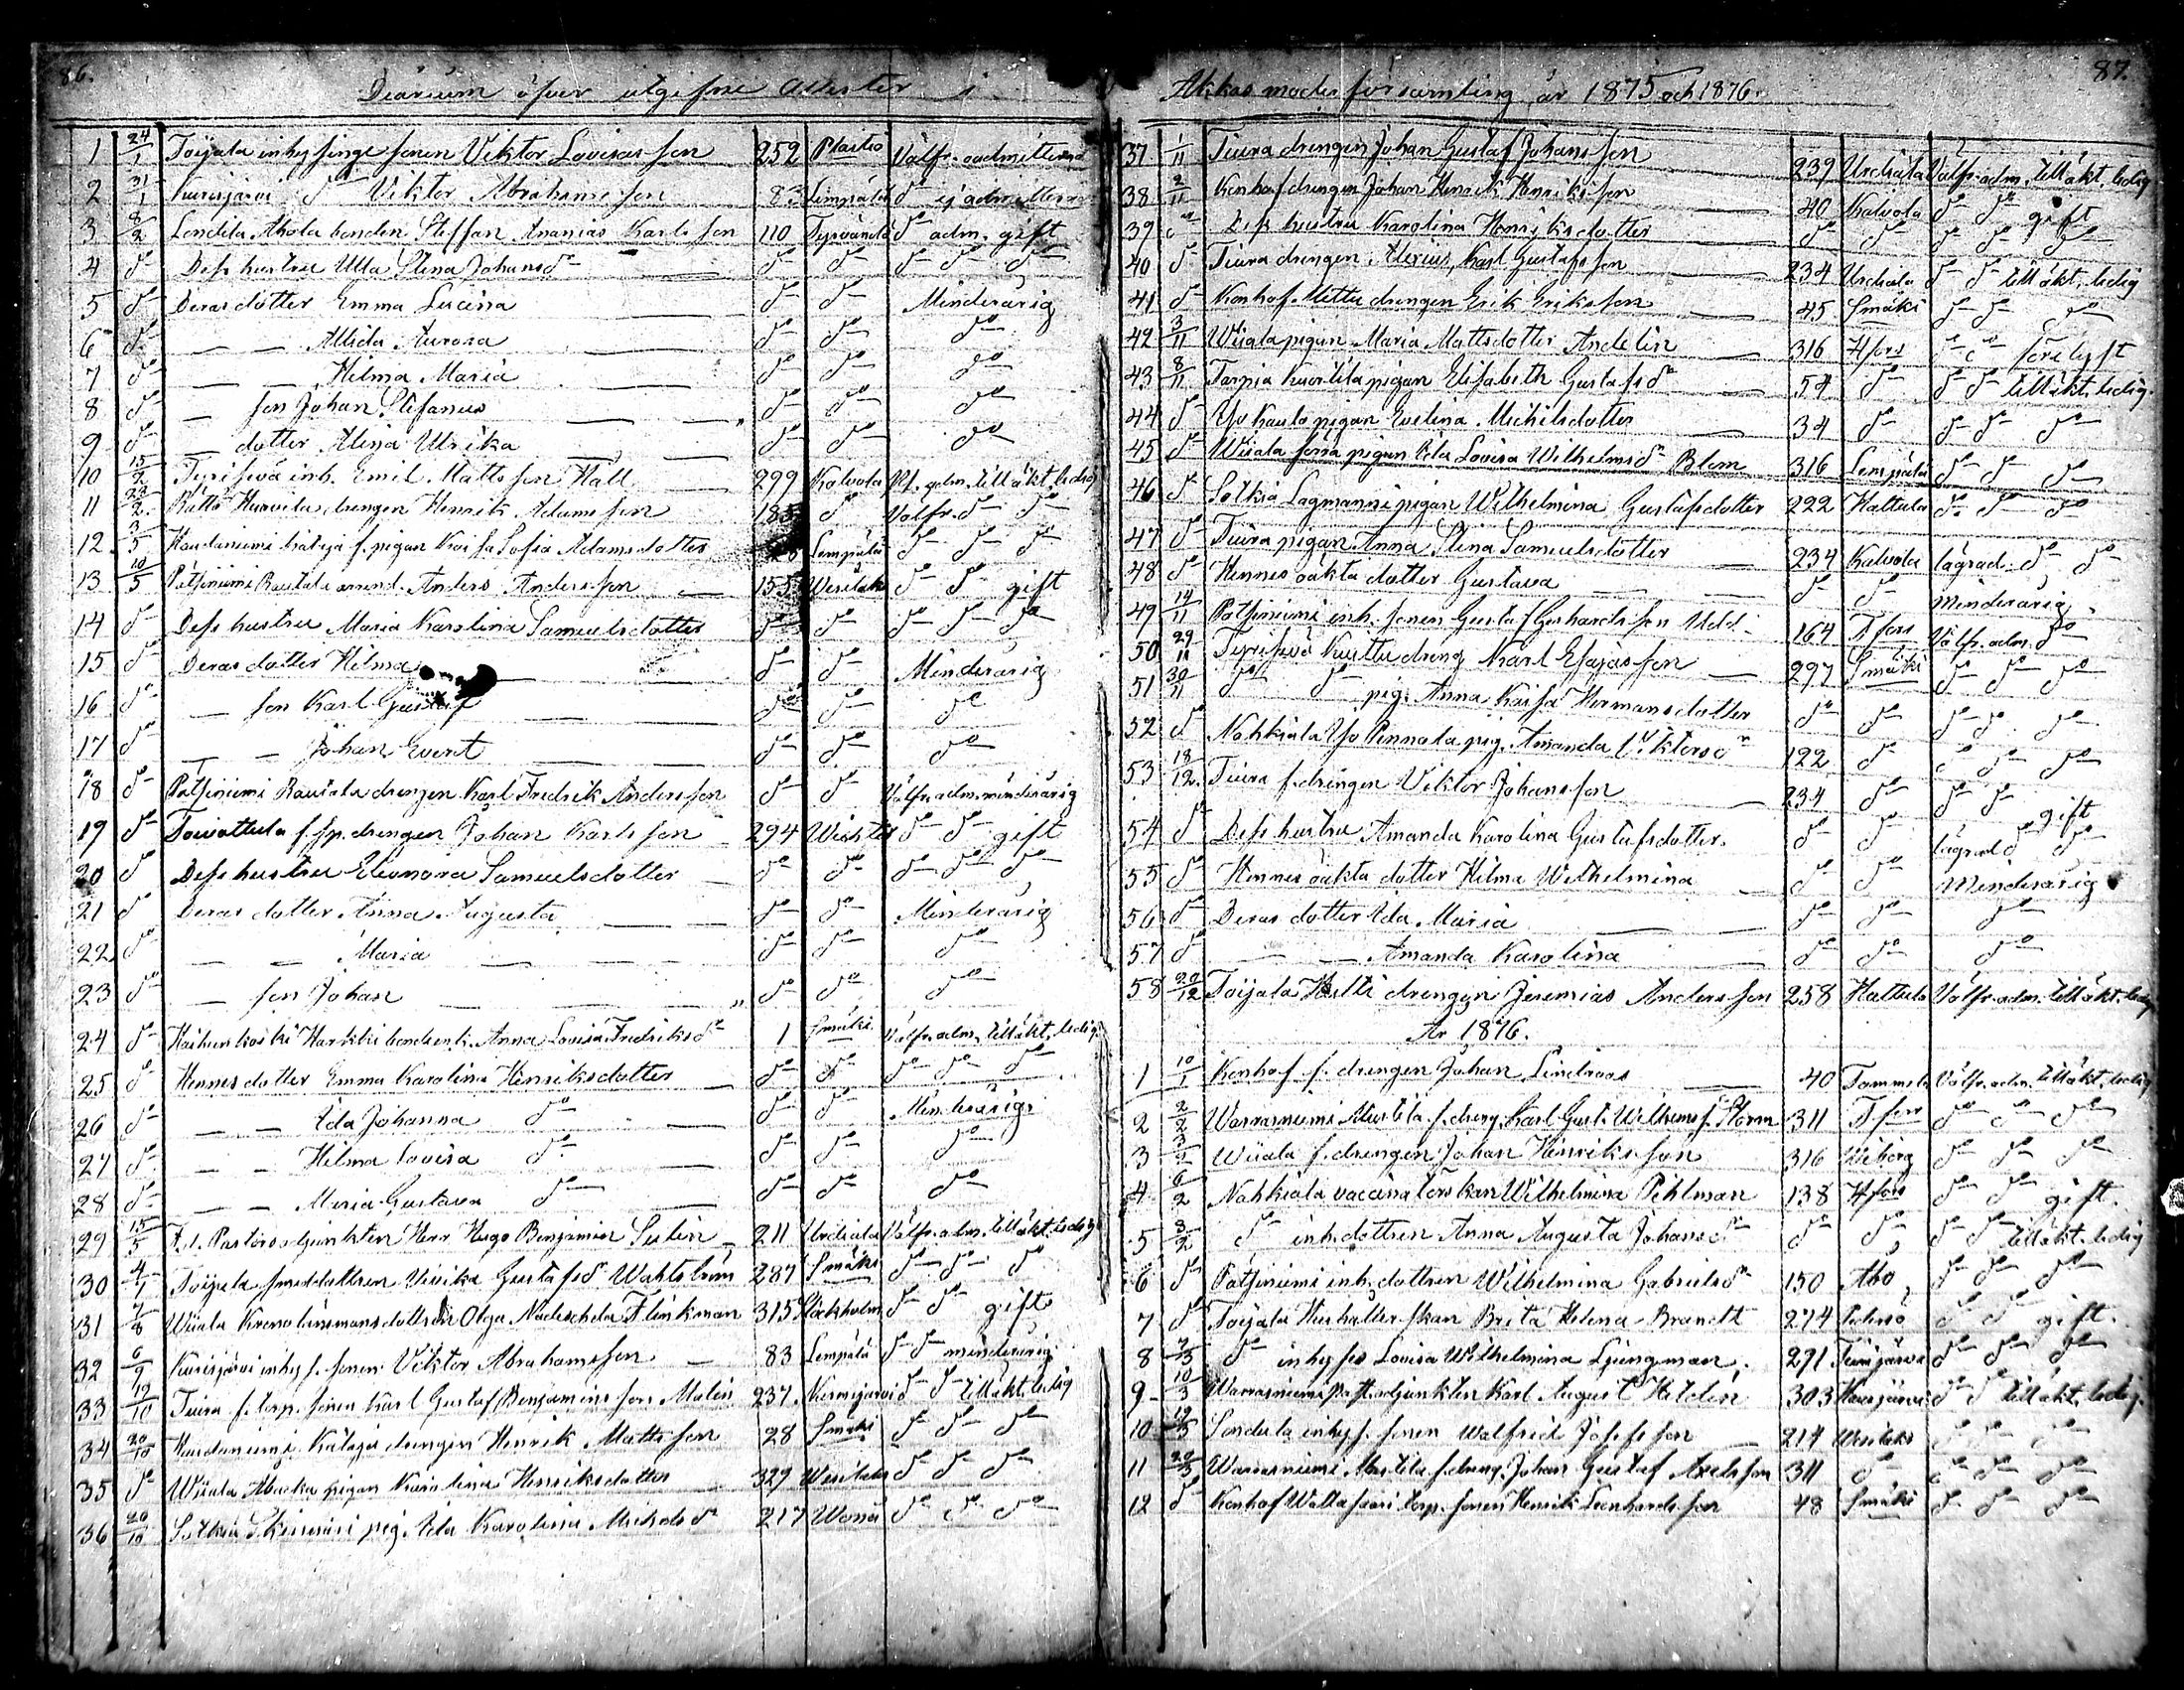 86.
Diarium öfver utgifne Attester i
1 24/1 Toijala inhysinge sonen Viktor Lovisasson 252 Välfr. oadmitterad
2 31/1 Kurisjärvi do Viktor Abrahamsson 83 Lempälä do ej admitterad
3 8/2 Lontila Ahola bonden Steffan Ananias Karlsson 110 Tyrvändö do adm. gift
4 do Dess hustru Ulla Stina Johansdr do do do do do
5 do Deras dotter Emma Lucina do do Minderårig
6 do — — Alida Aurora do do do
7 do — — Hilma Maria do do do
8 do — son Johan Stefanus do do do
9 do — dotter Alina Ulrika do do do
10 15/2 inh. Emil Mattsson Häll 299 Kalvola adm. till äkt. ledig
11 22/2 drengen Henrik Adamsson 183 do Välfr. do do
12 3/5 f. pigan Kaisa Sofia Adamsdotter Lempälä do do do
13 10/5 Pätsiniemi Rautala arrend. Anders Andersson 155 Wesilaks do do gift
14 do Dess hustru Maria Karolina Samuelsdotter do do do do do
15 do Deras dotter Hilma do do Minderårig
16 do — son Karl Gustaf do do do
17 do — — Johan Evert do do do
18 do Pätsiniemi Rautala drengen Karl Fredrik Andersson do do Välfr. adm. minderårig
19 do f. drengen Johan Karlsson 294 do do gift
20 do Dess hustru Eleonora Samuelsdotter do do do do do
21 do Deras dotter Anna Augusta do do Minderårig
22 do — — Maria do do do
23 do — son Johan do do do
24 do Haihunkoski Harkki bondenk. Anna Lovisa Fredriksdr 1 Smäki Välfr. adm. till äkt. ledig
25 do Hennes dotter Emma Karolina Henriksdotter do do do do do
26 do — — Ida Johanna do do do Minderårig
27 do — — Hilma Lovisa do do do do
28 do — — Maria Gustava do do do do
29 15/5 Pastorsadjunkten Herr Hugo Benjamin 211 Urdiala Välfr. adm. till äkt. ledig
30 4/7 Toijala smeddottren Vivika Gustafsdr Wahlström 287 Smäki do do do
31 7/8 Wiiala Kronolänsmansdottren Olga Nadeschda Flinkman 315 Stockholm do do gift
32 6/9 Kurisjärvi inhys s. sonen Viktor Abrahamsson 83 Lempälä do do minderårig
33 12/10 Tiura f. torp. sonen Karl Gustaf Benjaminsson Malin 237 do do till äkt. ledig
34 20/10 drengen Henrik Mattsson 28 Smäki do do do
35 do Wiiala pigan Karolina Henriksdotter 329 Wesilaks do do do
36 20/10 Sotkia pig. Ida Karolina Mickelsdr 217 Wånå do do do
87.
Akkas moderförsamling år 1875 och 1876.
37 1/11 Tiura drengen Johan Gustaf Johansson 239 Urdiala Välfr. adm. till äkt. ledig
38 2/11 Konhof drengen Johan Henrik Henriksson 40 Kalvola do do gift
39 do Dess hustru Karolina Henriksdotter do do do do do
40 do Tiura drengen Alexius Karl Gustafsson 234 Urdiala do do till äkt. ledig
41 do Konhof drengen Erik Eriksson 45 Smäki do do do
42 3/11 Wiiala pigan Maria Mattsdotter Andelin 316 Hfors do do förelyst
43 8/11 Tarpia pigan Elisabeth Gustafsdr 54 do do do till äkt. ledig
44 do pigan Evelina Michelsdotter 34 do do do do
45 do Wiiala förra pigan Ida Lovisa Wilhelmsdr Blom 316 Lempälä do do do
46 do Sotkia Lagmanni pigan Wilhelmina Gustafsdotter 222 Hattula do do do
47 do Tiura pigan Anna Stina Samuelsdotter 234 Kalvola lägrad do do
48 do Hennes oäkta dotter Gustava do do Minderårig
49 14/11 Pätsiniemi inh. sonen Gustaf Gerhardsson Udd 164 Tfors Välfr. adm. do
50 29/11 dreng Karl Esajasson 297 Smäki do do do
51 30/11 do do pig. Anna Kaisa Hermansdotter do do do do do
52 do Nahkiala pig. Amanda Viktorsdr 122 do do do do
53 18/12 Tiura f. drengen Viktor Johansson 234 do do do gift
54 do Dess hustru Amanda Karolina Gustafsdotter do do lägrad do do
55 do Hennes oäkta dotter Hilma Wilhelmina do do Minderårig
56 do Deras dotter Ida Maria do do do
57 do — — Amanda Karolina do do do
58 20/12 Toijala drengen Jeremias Andersson 258 Hattula Välfr. adm. till äkt. ledig
År 1876.
1 10/1 Konhof f. drengen Johan Lindroos 40 Tammela Välfr. adm. till äkt. ledig
2 2/2 Warrasniemi Anttila f. dreng. Karl Gust. Wilhelmss. Storm 311 Tfors do do do
3 3/2 Wiiala f. drengen Johan Henriksson 316 Wiborg do do do
4 6/2 Nahkiala vaccinatörskan Wilhelmina Pihlman 138 Hfors do do gift.
5 8/2 do inh. dottren Anna Augusta Johansdr do do do do till äkt. ledig
6 do Pätsiniemi inh. dottren Wilhelmina Gabrielsdr 150 Åbo do do do
7 do Toijala Hushållerskan Brita Helena Brandt 274 do do gift.
8 7/3 do inhyses Lovisa Wilhelmina Ljungman 271 do do do
9 10/3 Warrasniemi Pastadjunkten Karl August Helden 303 do do till äkt. ledig.
10 19/3 Sondula inhys s. sonen Walfrid Josefsson 214 Wesilaks do do do
11 20/3 Warrasniemi Anttila f. dreng. Johan Gustaf Axelsson 311 do do do do
12 do Konhof torp. sonen Henrik Leonhardsson 48 Smäki do do do